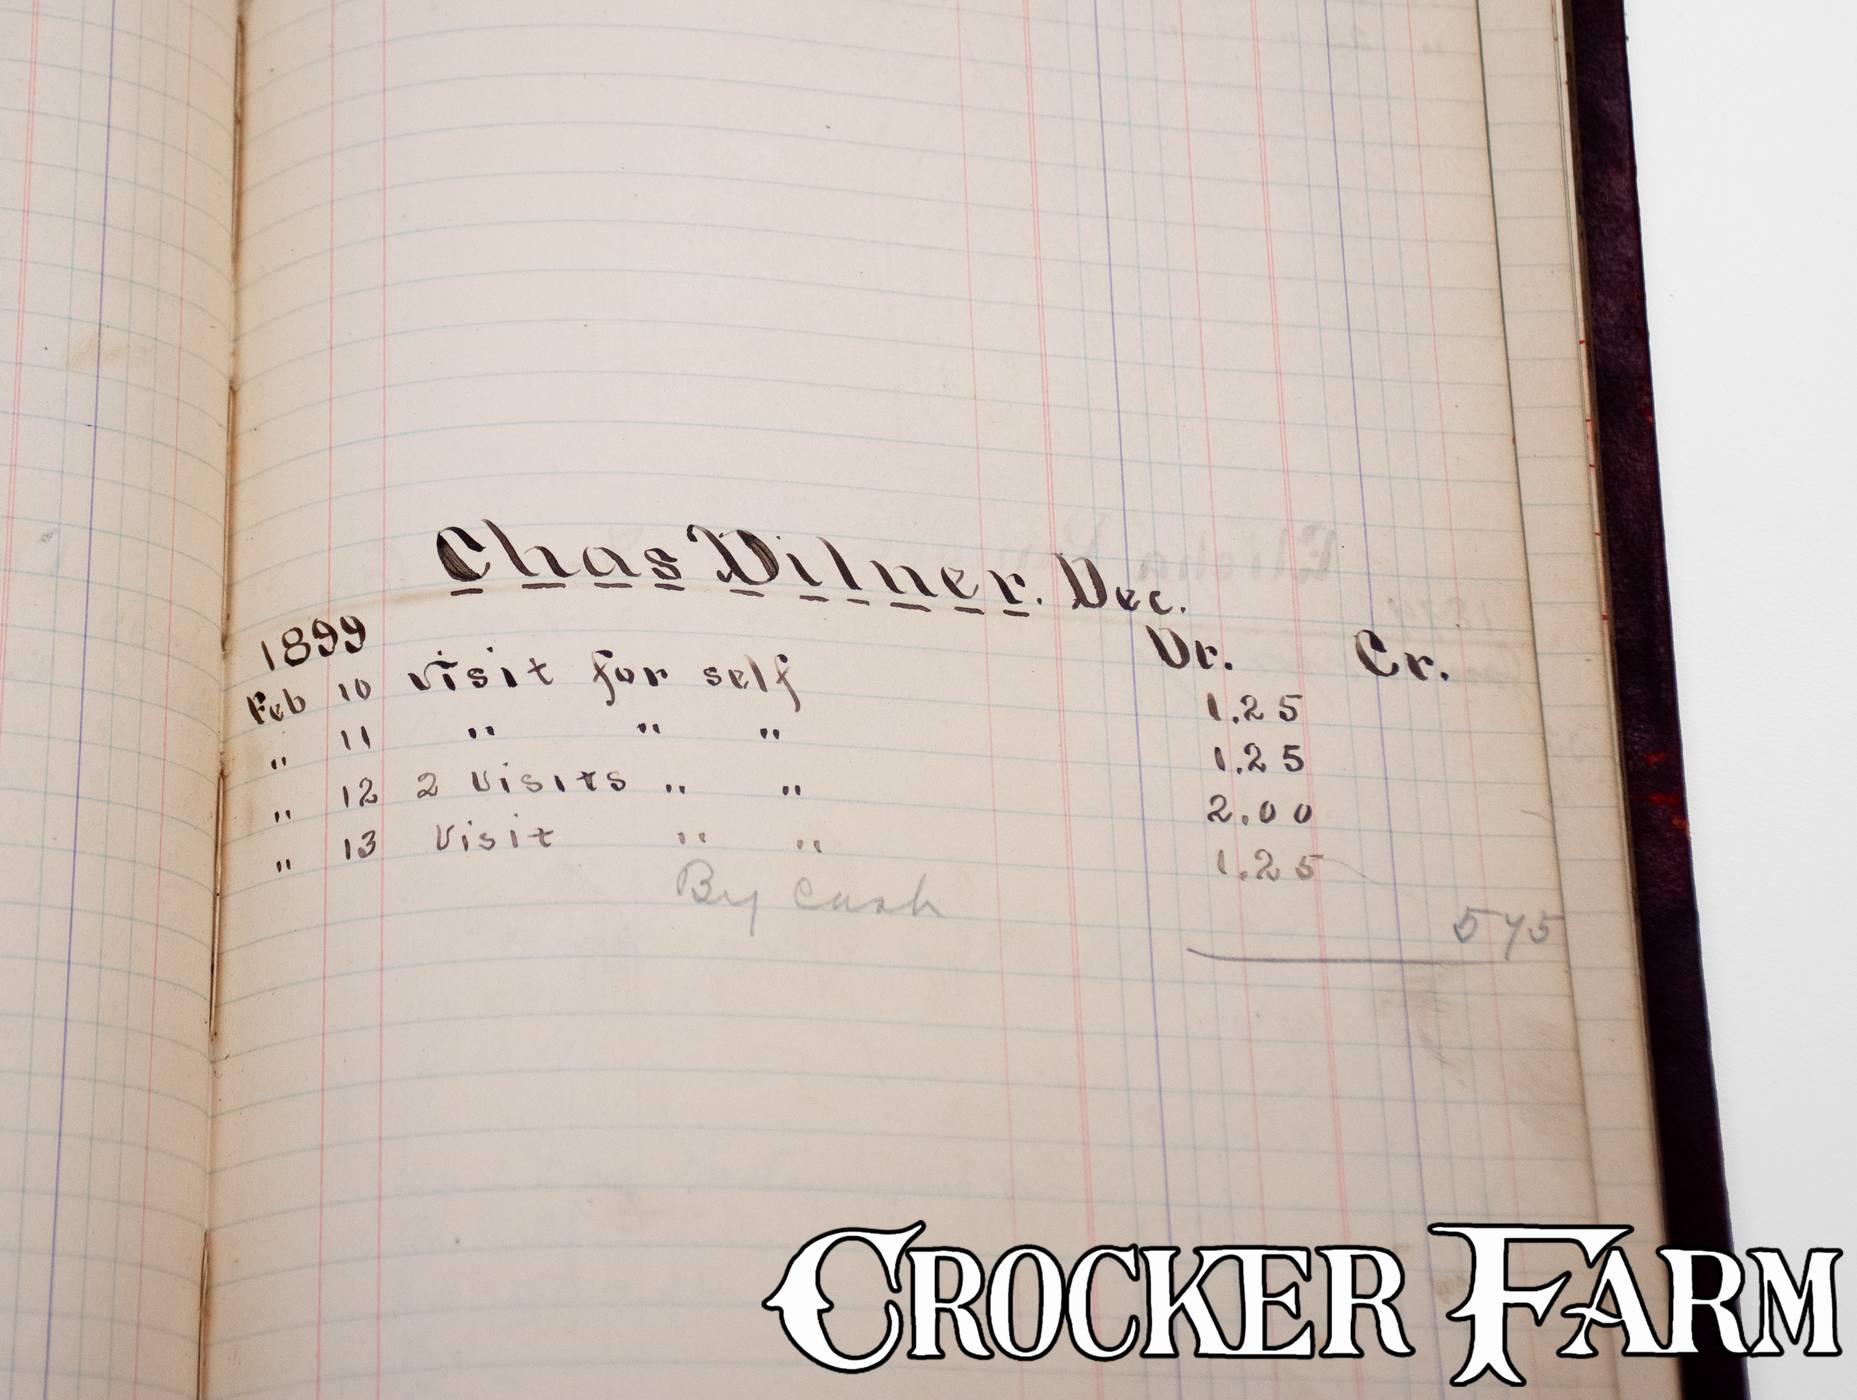 Chas Dilner. Dec.
1899 Dr. Cr.
Feb 10 Visit for self 1.25
" 11 " " " 1.25
" 12 2 Visits " " 2.00
" 13 Visit " " 1.25
By Cash 575
CROCKER FARM